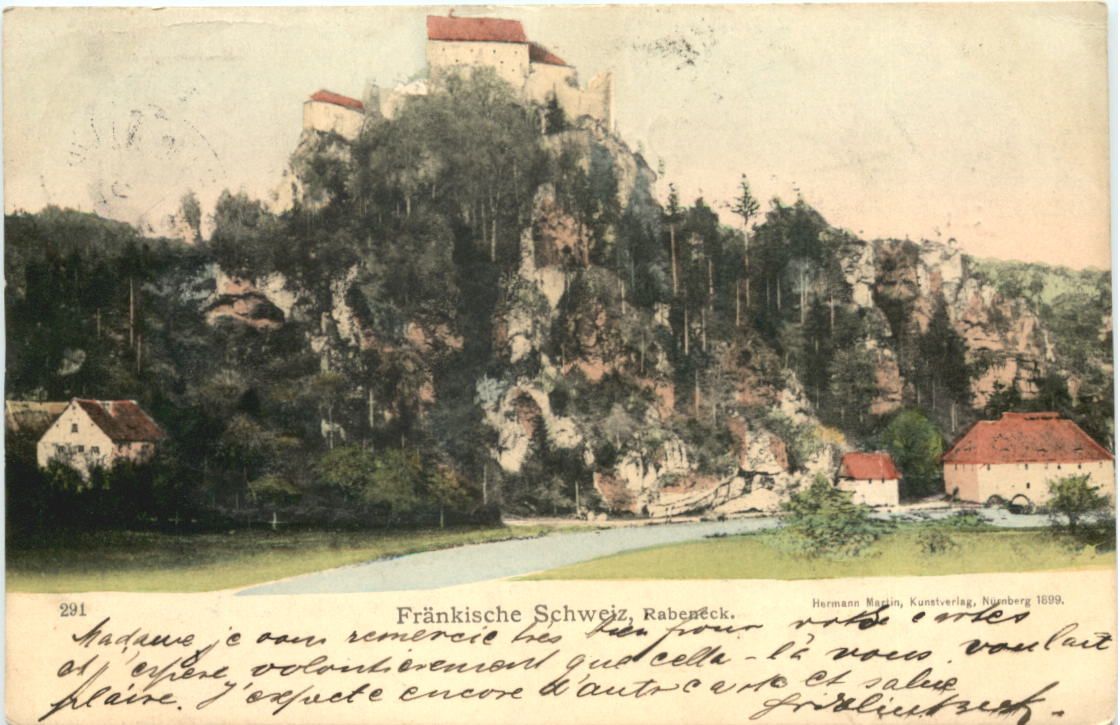 291
Fränkische Schweiz, Rabeneck.
Hermann Martin, Kunstverlag, Nürnberg 1899.
Madame, je vous remercie très bien pour votre cartes
et j'espère volontièrement que cella-là vous voulait
plaire. J'expecte encore d'autr carte et salue